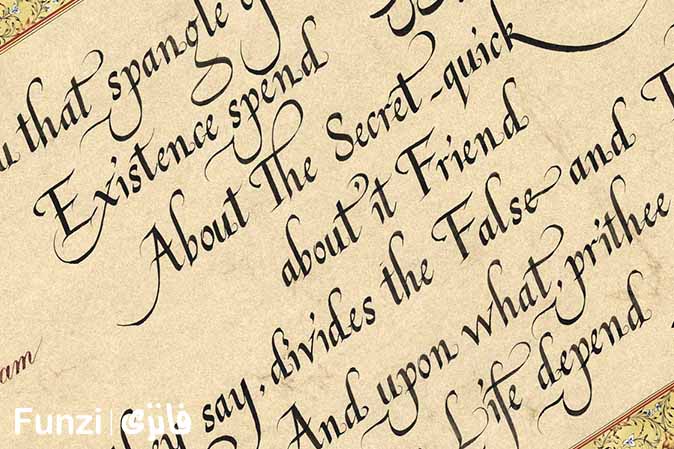 that spangle
Existence spend
About The Secret - quick
about it Friend
say, divides the False and
And upon what, prithee
Life depend
am
Funzi | فانزی